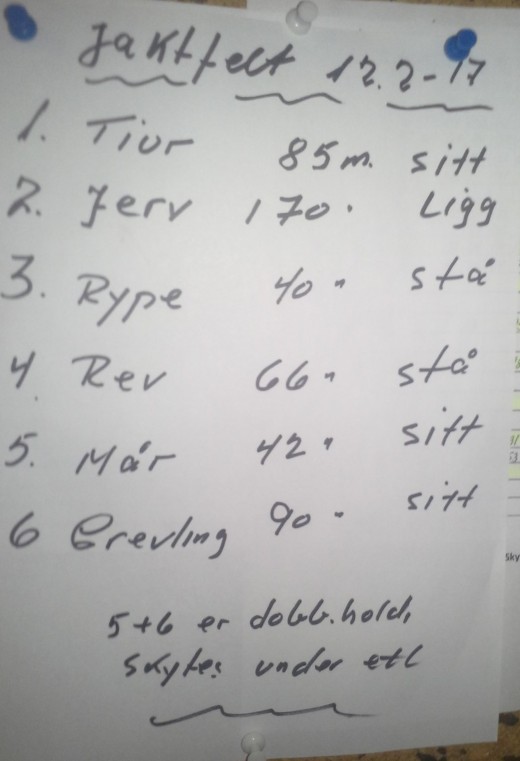 Jaktfelt 12.2-17
1. Tiur 85m. sitt
2. Jerv 170 " Ligg
3. Rype 40 " stå
4. Rev 66 " stå
5. Mår 42 " sitt
6 Grevling 90 " sitt
5+6 er dobb.hold,
skytes under ett